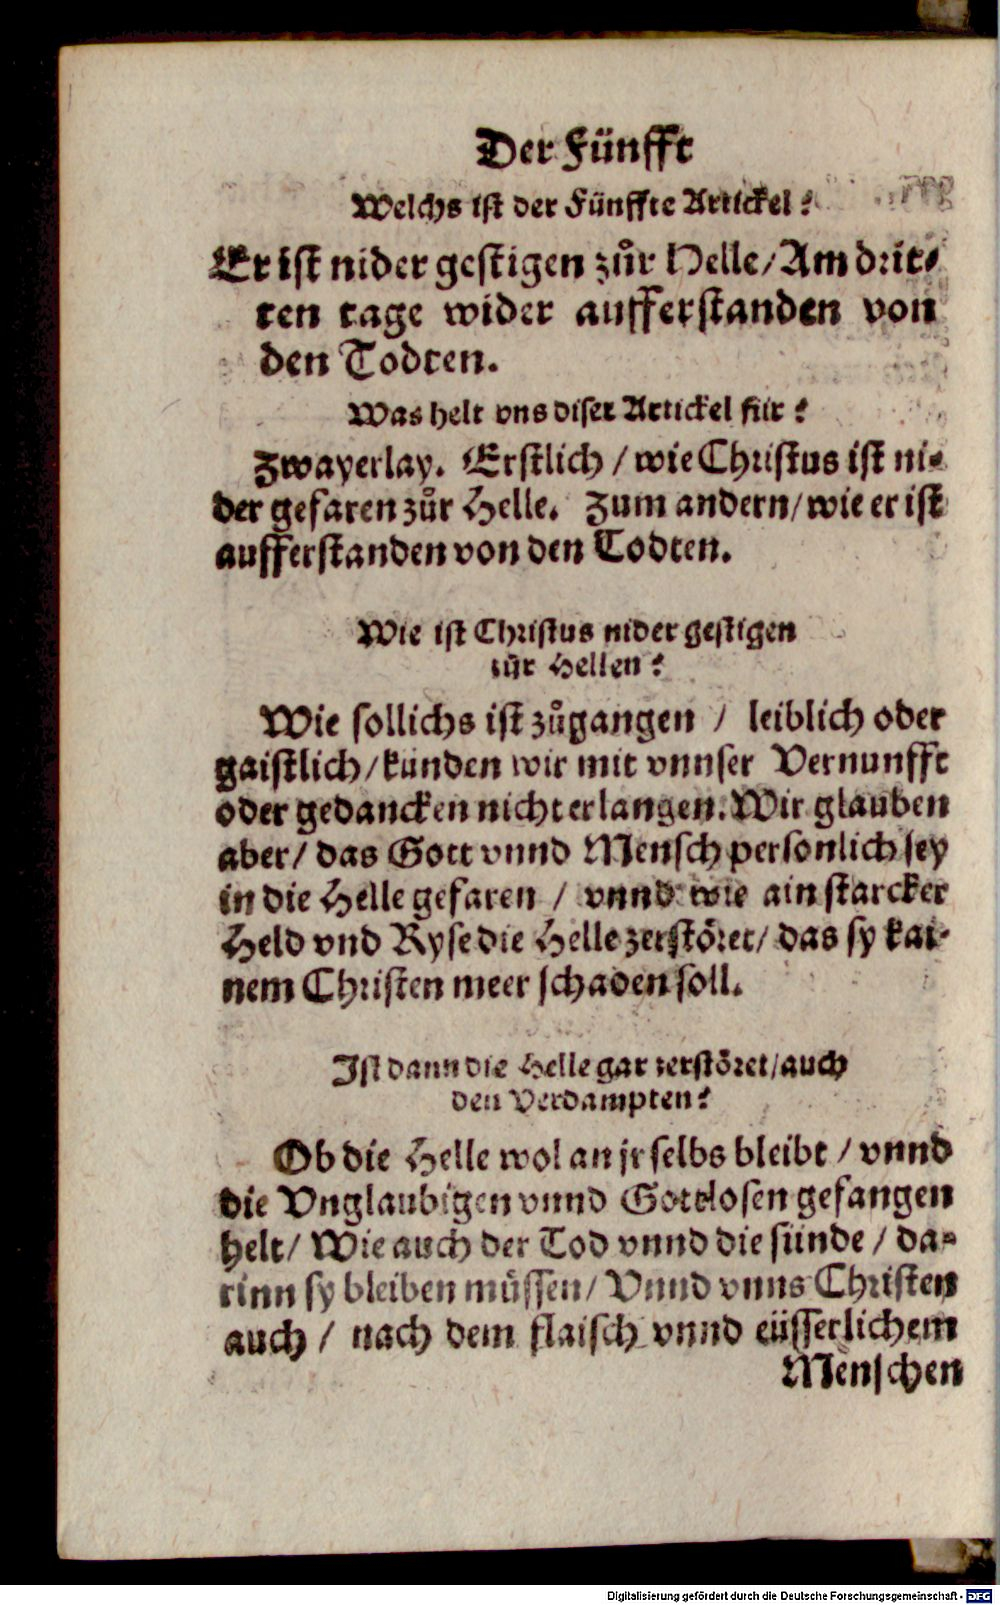 Der Fünfft
Welchs ist der Fünffte Artickel?
Er ist nider gestigen zůr Helle/Am drit⸗
ten tage wider aufferstanden von
den Todten.
Was helt vns diser Artickel für?
Zwayerlay. Erstlich/wie Christus ist ni⸗
der gefaren zůr Helle. Zum andern/wie er ist
aufferstanden von den Todten.
Wie ist Christus nider gestigen
zůr Hellen?
Wie sollichs ist zůgangen / leiblich oder
gaistlich/kunden wir mit vnnser Vernunfft
oder gedancken nicht erlangen. Wir glauben
aber/ das Gott vnnd Mensch personlich sey
in die Helle gefaren / vnnd wie ain starcker
Held vnd Ryse die Helle zerstöret/ das sy kai⸗
nem Christen meer schaden soll.
Ist dann die Helle gar zerstöret/auch
den Verdampten?
Ob die Helle wol an jr selbs bleibt / vnnd
die Vnglaubigen vnnd Gottlosen gefangen
helt/ Wie auch der Tod vnnd die sünde / da⸗
rinn sy bleiben müssen/ Vnnd vnns Christen
auch / nach dem flaisch vnnd eüsserlichem
Menschen
Digitalisierung gefördert durch die Deutsche Forschungsgemeinschaft - DFG